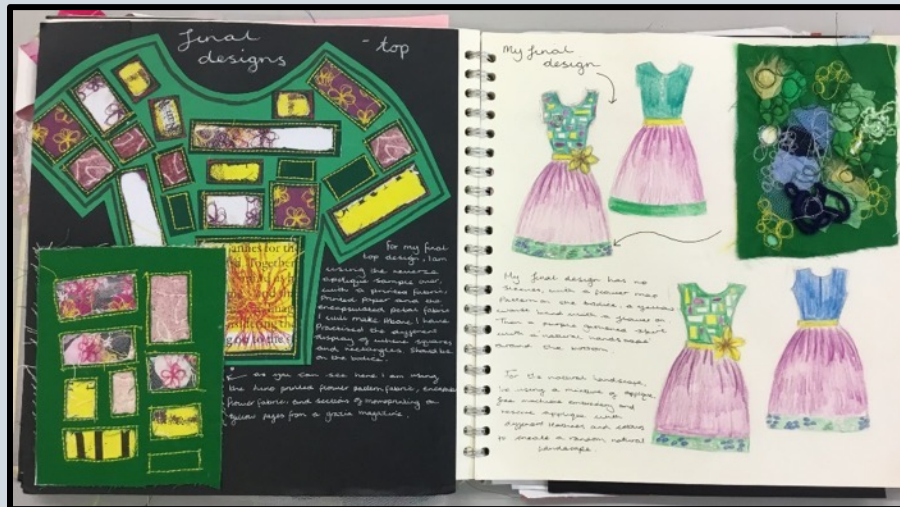 final
designs
- top
For my final
top design, I am
using the reverse
applique sample over,
with a printed fabric,
Printed paper and the
encapsulated petal fabric
I will make. Above, I have
Practised the different
display of where squares
and rectangles. Should be
on the bodice.
as you can see here I am using
the lino printed flower pattern fabric,
flower fabric, and sections of monoprinting on
yellow pages from a grazia magazine.
My final
design
My final design has no
sleeves, with a flower
Pattern on the bodice, a yellow
waist band with a flower on
Then a purple gathered skirt
with a 'natural landscape'
around the bottom.
For the natural landscape,
i'm using a mixture of applique,
free machine embroidery and
reverse applique with
different stitches and
to create a random natural
landscape.